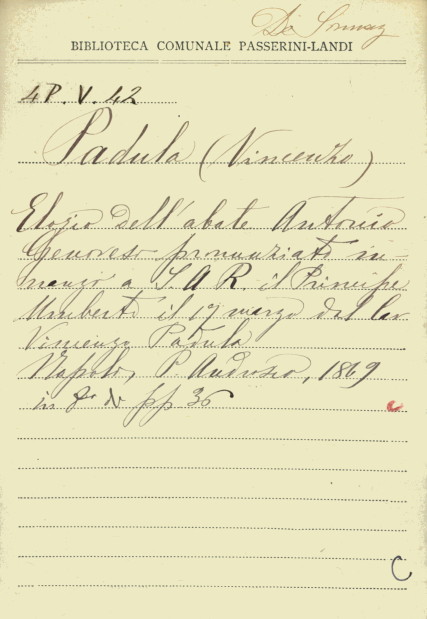 De Soresy
BIBLIOTECA COMUNALE PASSERINI-LANDI
4P. V. 42
Padula (Vincenzo)
Elogio dell'abate Antonio
Genovese pronunziato in-
nanzi a S. A. R. il Principe
Umberto il 19 marzo dal Cav
Vincenzo Padula
Napoli, P. Androsio, 1869
in 8o di pp 36
c
C